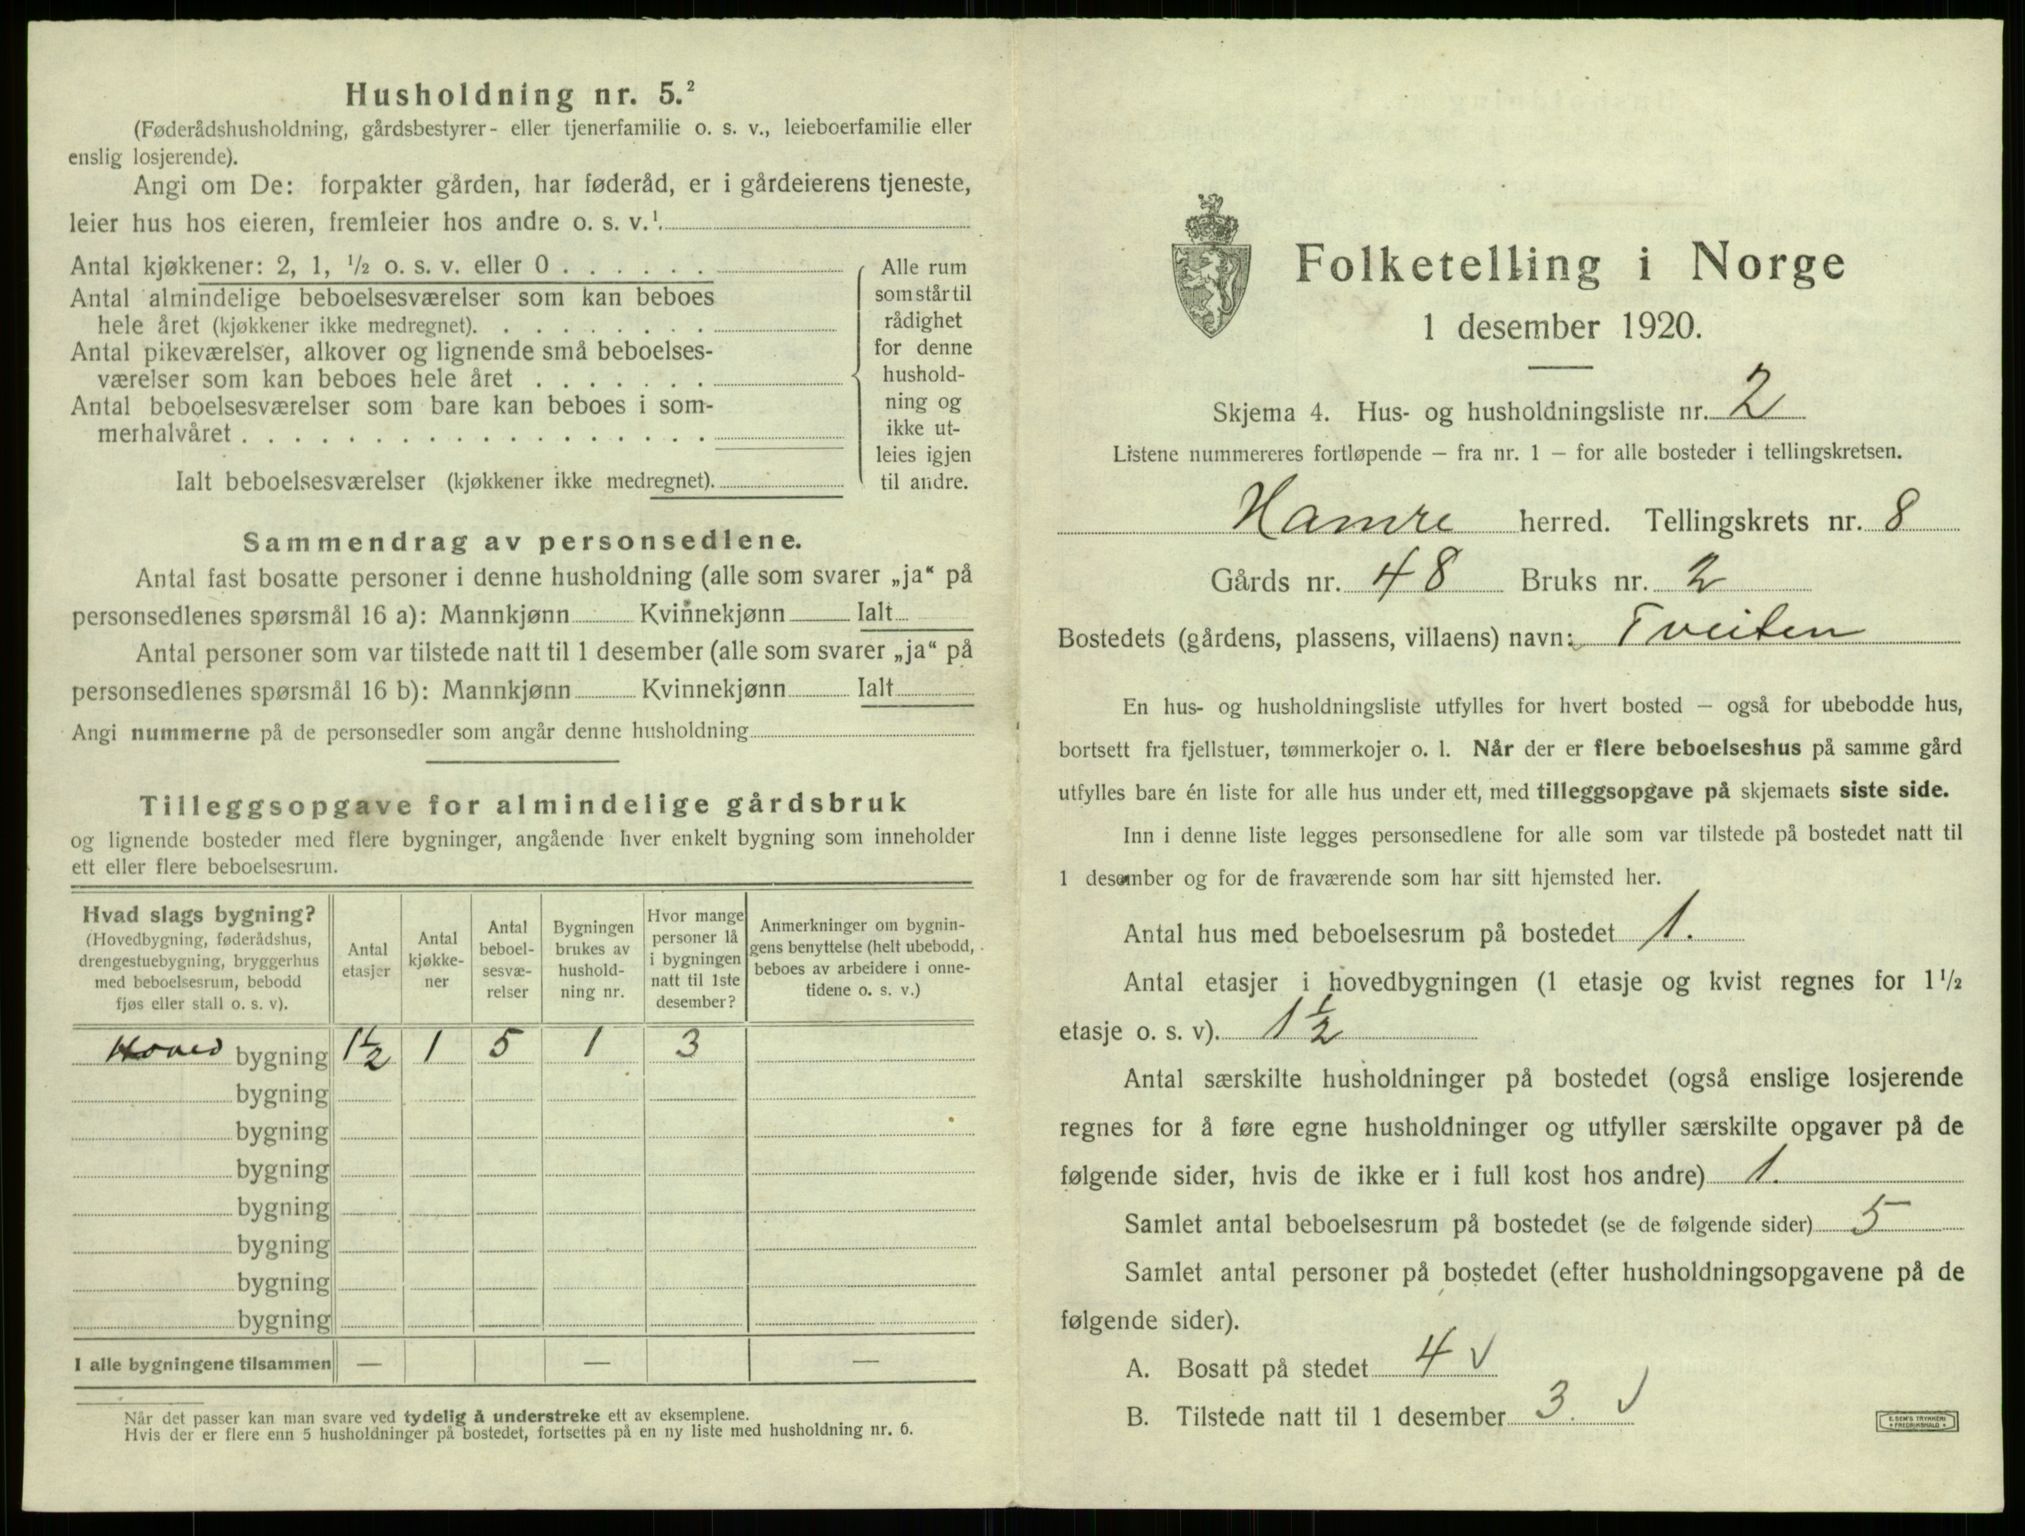 Husholdning nr. 5.²
(Føderådshusholdning, gårdsbestyrer- eller tjenerfamilie o. s. v., leieboerfamilie eller
enslig losjerende).
Angi om De: forpakter gården, har føderåd, er i gårdeierens tjeneste,
leier hus hos eieren, fremleier hos andre o. s. v.¹
Antal kjøkkener: 2, 1, ½ o. s. v. eller 0 . . . . . .
Antal almindelige beboelsesværelser som kan beboes
hele året (kjøkkener ikke medregnet). . . . . . . . .
Antal pikeværelser, alkover og lignende små beboelses-
værelser som kan beboes hele året . . . . . . .
Antal beboelsesværelser som bare kan beboes i som-
merhalvåret . . . . . . . . . . . . . . . . . .
Ialt beboelsesværelser (kjøkkener ikke medregnet).
Alle rum
som står til
rådighet
for denne
hushold-
ning og
ikke ut-
leies igjen
til andre.
Sammendrag av personsedlene.
Antal fast bosatte personer i denne husholdning (alle som svarer „ja“ på
personsedlenes spørsmål 16 a): Mannkjønn Kvinnekjønn Ialt
Antal personer som var tilstede natt til 1 desember (alle som svarer „ja“ på
personsedlenes spørsmål 16 b): Mannkjønn Kvinnekjønn Ialt
Angi nummerne på de personsedler som angår denne husholdning
Tilleggsopgave for almindelige gårdsbruk
og lignende bosteder med flere bygninger, angående hver enkelt bygning som inneholder
ett eller flere beboelsesrum.
Hvad slags bygning?
(Hovedbygning, føderådshus,
drengestuebygning, bryggerhus
med beboelsesrum, bebodd
fjøs eller stall o. s. v).
Antal
etasjer
Antal
kjøkke-
ner
Antal
beboel-
sesvæ-
relser
Bygningen
brukes av
hushold-
ning nr.
Hvor mange
personer lå
i bygningen
natt til 1ste
desember?
Anmerkninger om bygnin-
gens benyttelse (helt ubebodd,
beboes av arbeidere i onne-
tidene o. s. v.)
Hoved bygning 1½ 1 5 1 3
bygning
bygning
bygning
bygning
bygning
bygning
bygning
I alle bygningene tilsammen — — —
Når det passer kan man svare ved tydelig å understreke ett av eksemplene.
Hvis der er flere enn 5 husholdninger på bostedet, fortsettes på en ny liste med husholdning nr. 6.
Folketelling i Norge
1 desember 1920.
Skjema 4. Hus- og husholdningsliste nr. 2
Listene nummereres fortløpende — fra nr. 1 — for alle bosteder i tellingskretsen.
Hamre herred. Tellingskrets nr. 8
Gårds nr. 48 Bruks nr. 2
Bostedets (gårdens, plassens, villaens) navn: Tveiten
En hus- og husholdningsliste utfylles for hvert bosted — også for ubebodde hus,
bortsett fra fjellstuer, tømmerkojer o. l. Når der er flere beboelseshus på samme gård
utfylles bare én liste for alle hus under ett, med tilleggsopgave på skjemaets siste side.
Inn i denne liste legges personsedlene for alle som var tilstede på bostedet natt til
1 desember og for de fraværende som har sitt hjemsted her.
Antal hus med beboelsesrum på bostedet 1.
Antal etasjer i hovedbygningen (1 etasje og kvist regnes for 1½
etasje o. s. v). 1½
Antal særskilte husholdninger på bostedet (også enslige losjerende
regnes for å føre egne husholdninger og utfyller særskilte opgaver på de
følgende sider, hvis de ikke er i full kost hos andre) 1.
Samlet antal beboelsesrum på bostedet (se de følgende sider) 5
Samlet antal personer på bostedet (efter husholdningsopgavene på de
følgende sider).
A. Bosatt på stedet 4 √
B. Tilstede natt til 1 desember 3. √
E. SEM'S TRYKKERI
FREDRIKSHALD